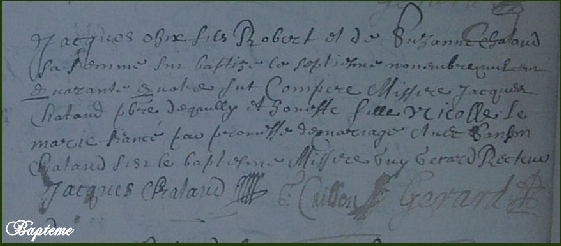 Jacques obre fils Robert et de Suzanne Chaland
sa femme fut baptize le septiesme novembre mil six cent
quarante quatre fut Compere Missire Jacques
Chaland pbre de et honeste fille Nicolle le
marie fiancé par promesse de mariage Avec
Chaland fist le baptesme Missire Guy Gerard Recteur
Jacques Chaland Gerard
Bapteme